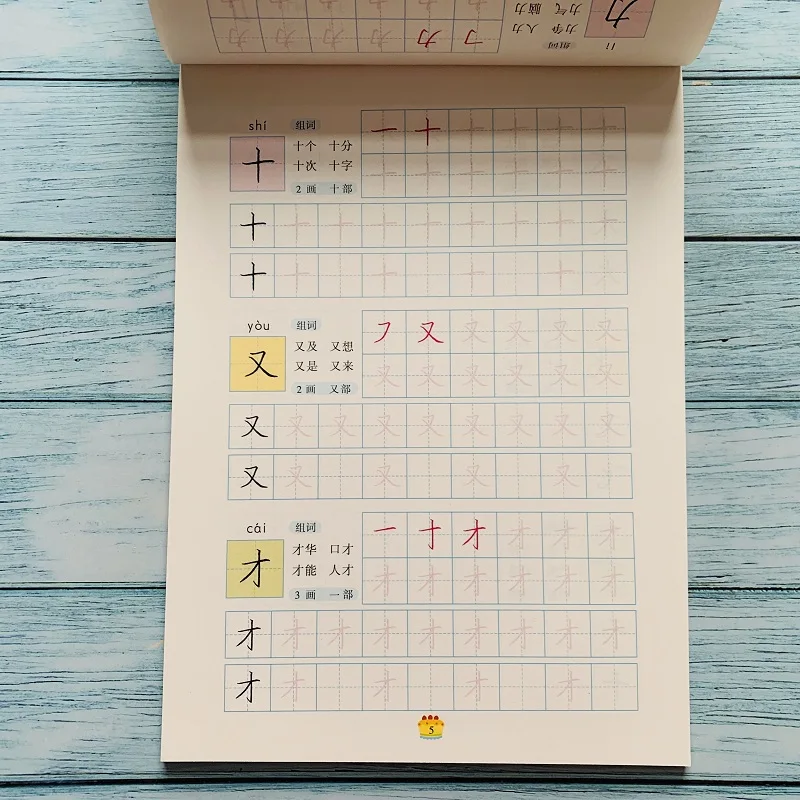 lì
组词
力争 人力
力气 脑力
力
㇆ 力 力 力 力 力
力 力 力 力 力 力
shí
组词
十
十个 十分
十次 十字
2 画 十部
一 十 十 十 十 十
十 十 十 十 十 十
十 十 十 十 十 十 十 十 十
十 十 十 十 十
yòu
组词
又
又及 又想
又是 又来
2 画 又部
㇇ 又 又 又 又 又
又 又 又 又 又 又
又 又 又 又 又 又 又 又 又
又 又 又 又 又
cái
组词
才
才华 口才
才能 人才
3 画 一部
一 十 才 才 才 才
才 才 才 才 才 才
才 才 才 才 才 才 才 才 才
才 才 才 才 才
5